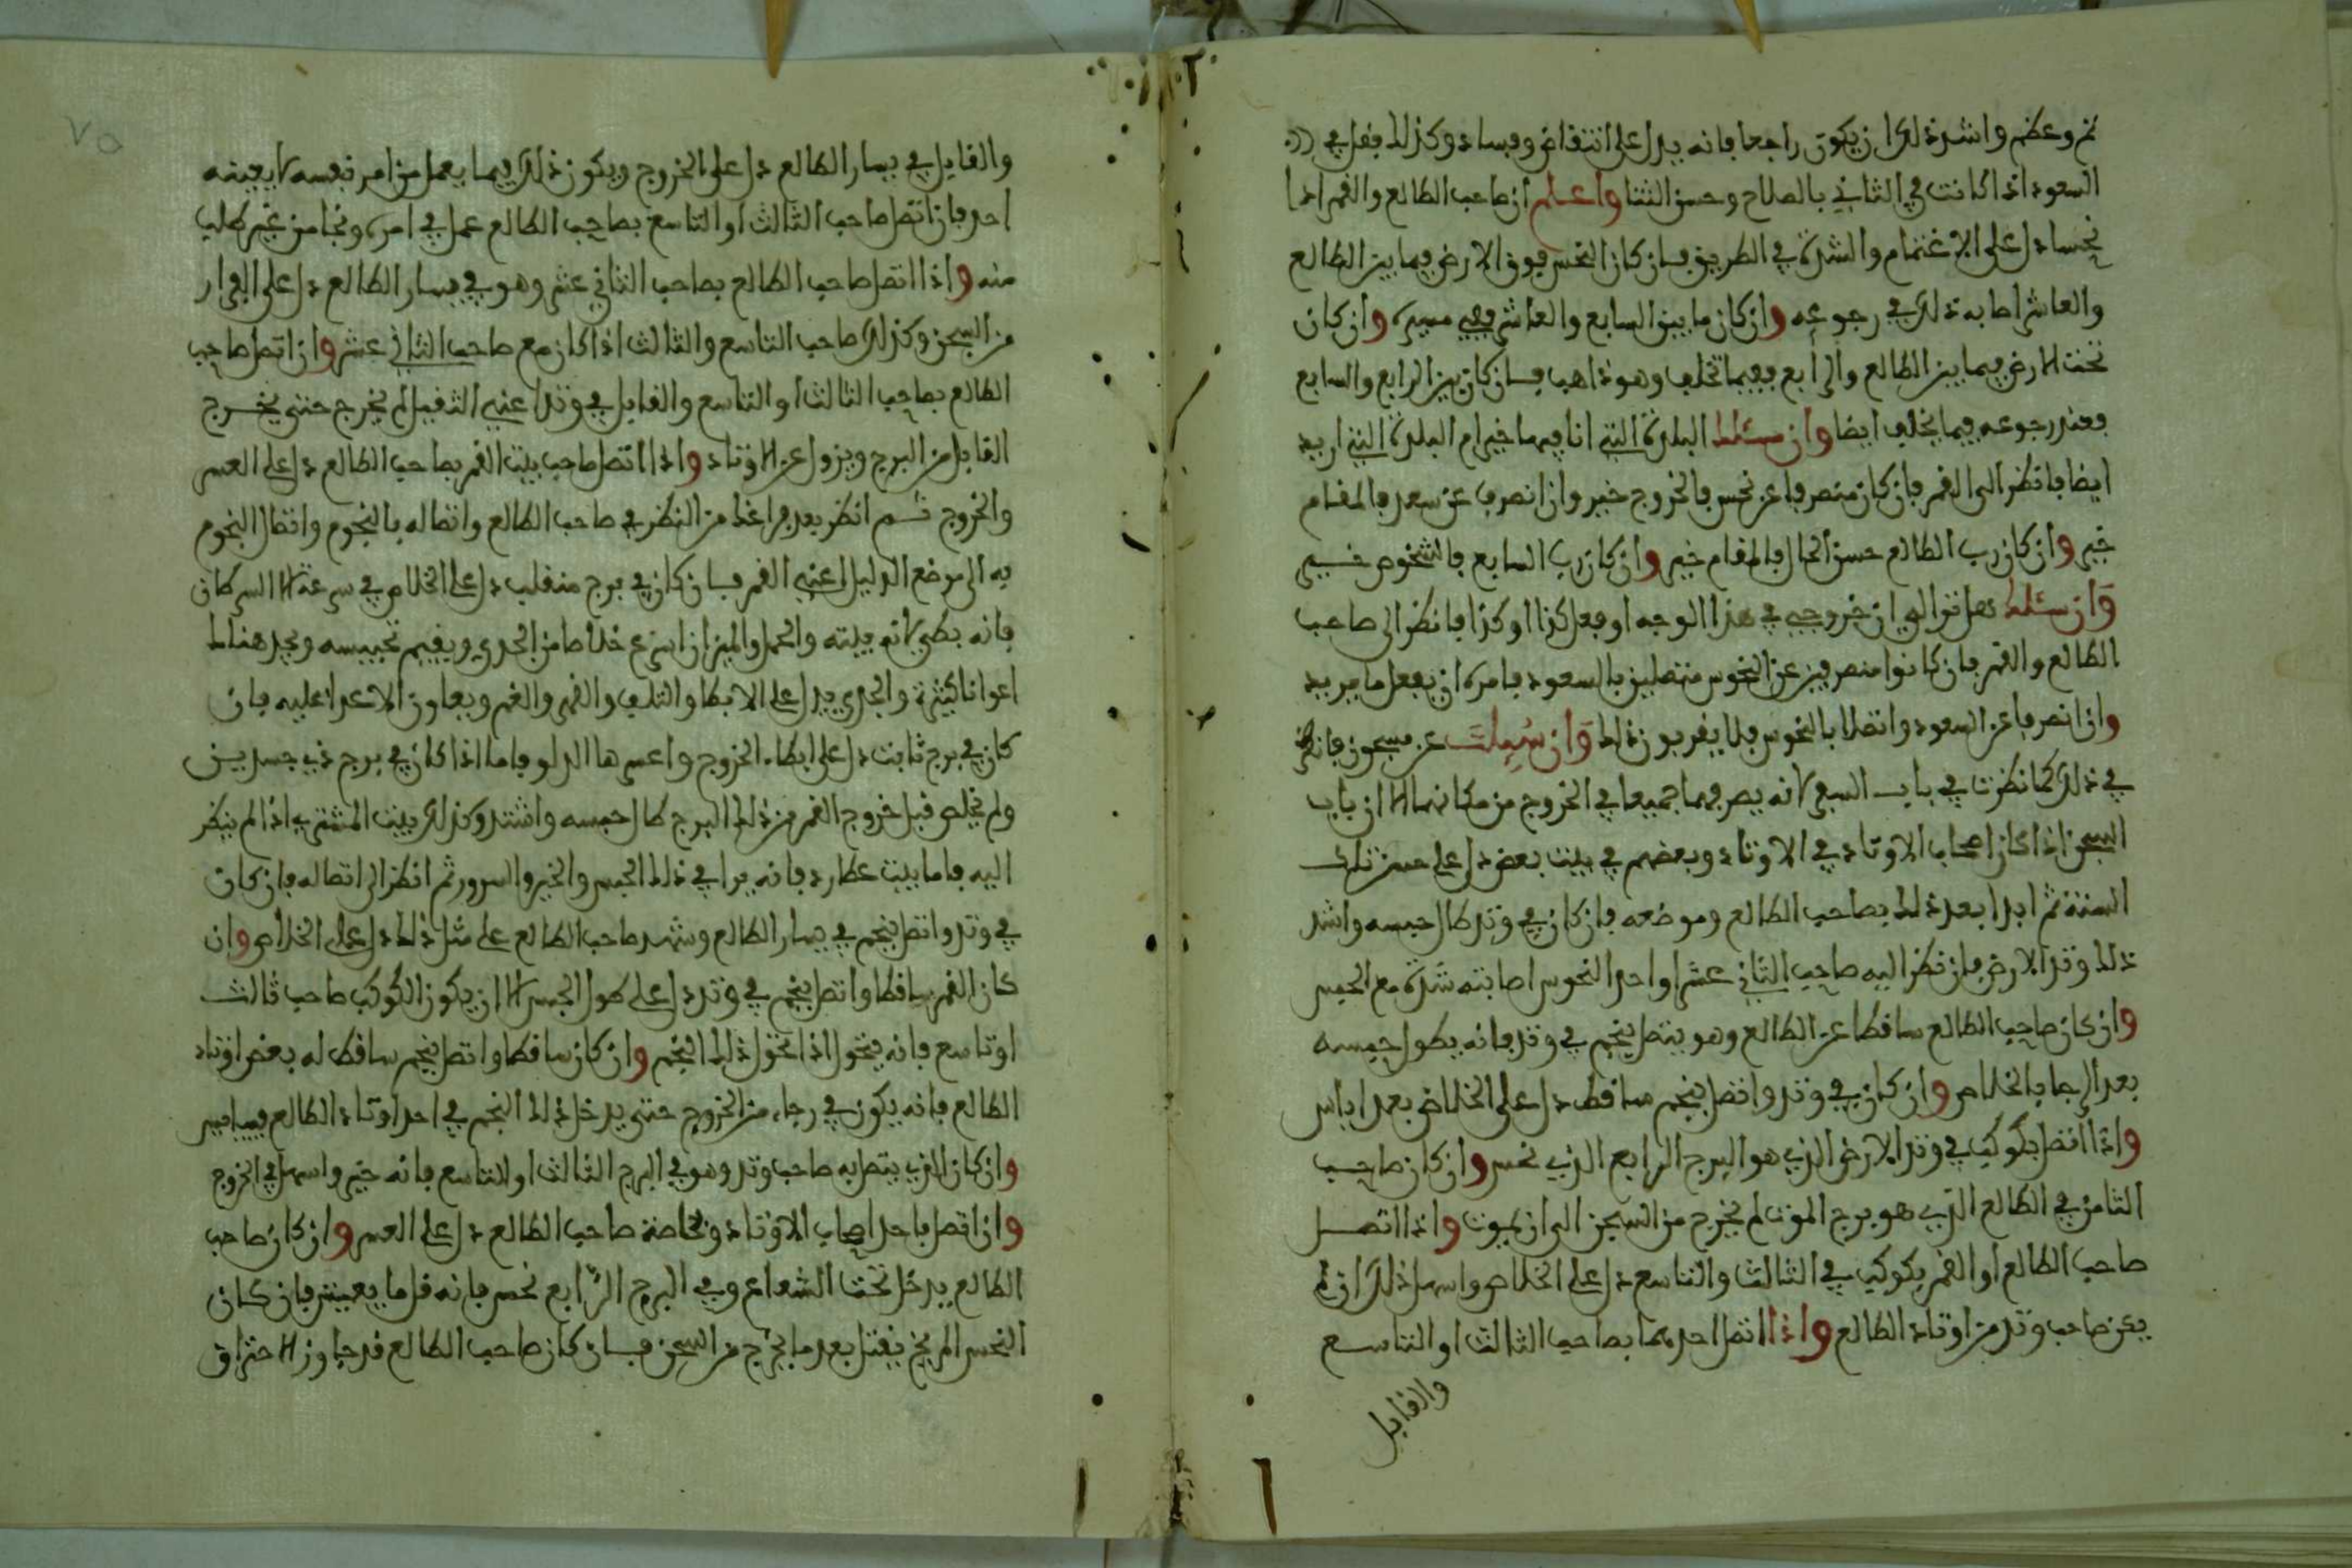 ثم وعظم واشد ذلك ان يكون راجعا فانه يدل على انتقاض وفساد وكذلك فقل في
السعود اذا كانت في الثاني بالصلاح وحسن الثنا واعلم ان صاحب الطالع والقمر اذا
نحسا دل على الاغتمام والشدة في الطريق فان كان النحس فوق الارض فيما بين الطالع
والعاشر اصابه ذلك في رجوعه وان كان ما بين السابع والعاشر ففي مسيره وان كان
تحت الارض فيما بين الطالع والرابع ففيما تخلف وهو ذاهب فان كان بين الرابع والسابع
فعند رجوعه فيما يخلف ايضا وان سئلت البلدة التي انا فيها خير ام البلدة التي اريد
ايضا فانظر الى القمر فان كان منصرفا عن نحس فالخروج خير وان انصرف عن سعد فالمقام
خير وان كان رب الطالع حسن الحال فالمقام خير وان كان رب السابع فالشخوص خير
وان سئلت هل توالي ان خروجي في هذا الوجه او فعل كذا او كذا فانظر الى صاحب
الطالع والقمر فان كانوا منصرفين عن النحوس متصلين بالسعود فامره ان يفعل ما يريد
وان انصرفا عن السعود واتصلا بالنحوس فلا يقربون ذلك وان سئلت عن مسجون فانظر
في ذلك كما نظرت في باب السفر لانه يصرفهما جميعا في الخروج من مكانهما الا ان باب
السجن اذا كان اصحاب الاوتاد في الاوتاد وبعضهم في بيت بعض دل على حبس تلك
السنة ثم ابدا بعد ذلك بصاحب الطالع وموضعه فان كان في وتد طال حبسه واشد
ذلك وتد الارض فان نظر اليه صاحب الثاني عشر او احد النحوس اصابته شدة مع الحبس
وان كان صاحب الطالع ساقطا عن الطالع وهو يتصل بنجم في وتد فانه يطول حبسه
بعد الرجا بالخلاص وان كان في وتد واتصل بنجم ساقط دل على الخلاص بعد اياس
واذا اتصل بكوكب في وتد الارض الذي هو البرج الرابع الذي نحس وان كان صاحب
الثامن في الطالع الذي هو برج الموت لم يخرج من السجن الى ان يموت واذا اتصل
صاحب الطالع او القمر بكوكب في الثالث والتاسع دل على الخلاص واسهل ذلك ان لم
يكن صاحب وتد من اوتاد الطالع واذا اتصل احدهما بصاحب الثالث او التاسع
والقابل
والقابل في يسار الطالع دل على الخروج ويكون ذلك فيما يعمل من امر نفسه لا يعينه
احد فان اتصل صاحب الثالث او التاسع بصاحب الطالع عمل في امره ونجا من غير طلب
منه واذا اتصل صاحب الطالع بصاحب الثاني عشر وهو في يسار الطالع دل على الفرار
من السجن وكذلك صاحب التاسع والثالث اذا كان مع صاحب الثاني عشر وان اتصل صاحب
الطالع بصاحب الثالث او التاسع والقابل في وتد اعني الثقيل لم يخرج حتى يخرج
القابل من البرج ويزول عن الاوتاد واذا اتصل صاحب بيت القمر بصاحب الطالع دل على العسر
والخروج ثم انظر بعد فراغك من النظر في صاحب الطالع واتصاله بالنجوم واتصال النجوم
به الى موضع الدليل اعني القمر فان كان في برج منقلب دل على الخلاص في سرعة الا السرطان
فانه بطي لانه بيته والحمل والميزان اسرع خلاصا من الجدي ويقيم محبسه ويجد هناك
اعوانا كثيرة والجدي يدل على الابطا والتلف والقهر والغم ويعاون الاعدا عليه فان
كان في برج ثابت دل على ابطاء الخروج واعسرها الدلو فاما اذا كان في برج ذي جسدين
ولم يخلص قبل خروج القمر من ذلك البرج طال حبسه واشتد وكذلك بيت المشتري اذا لم ينظر
اليه فاما بيت عطارد فانه يرا في ذلك الحبس والخير والسرور ثم انظر الى اتصاله فان كان
في وتد واتصل بنجم في يسار الطالع وشهد صاحب الطالع على مثل ذلك دل على الخلاص وان
كان القمر ساقطا واتصل بنجم في وتد دل على طول الحبس الا ان يكون الكوكب صاحب ثالث
او تاسع فانه يتحول اذا تحول ذلك النجم وان كان ساقطا واتصل بنجم ساقط له بعض اوتاد
الطالع فانه يكون في رجاء من الخروج حتى يدخل ذلك النجم في احد اوتاد الطالع فيياس
وان كان الذي يتصل به صاحب وتد وهو في البرج الثالث او التاسع فانه خير واسهل في الخروج
وان اتصل باحد اصحاب الاوتاد وبخاصة صاحب الطالع دل على العسر وان كان صاحب
الطالع يدخل تحت الشعاع وفي البرج الرابع نحس فانه قل ما يعيش فان كان
النحس المريخ يقتل بعد ما يخرج من السجن فان كان صاحب الطالع قد جاوز الاحتراق